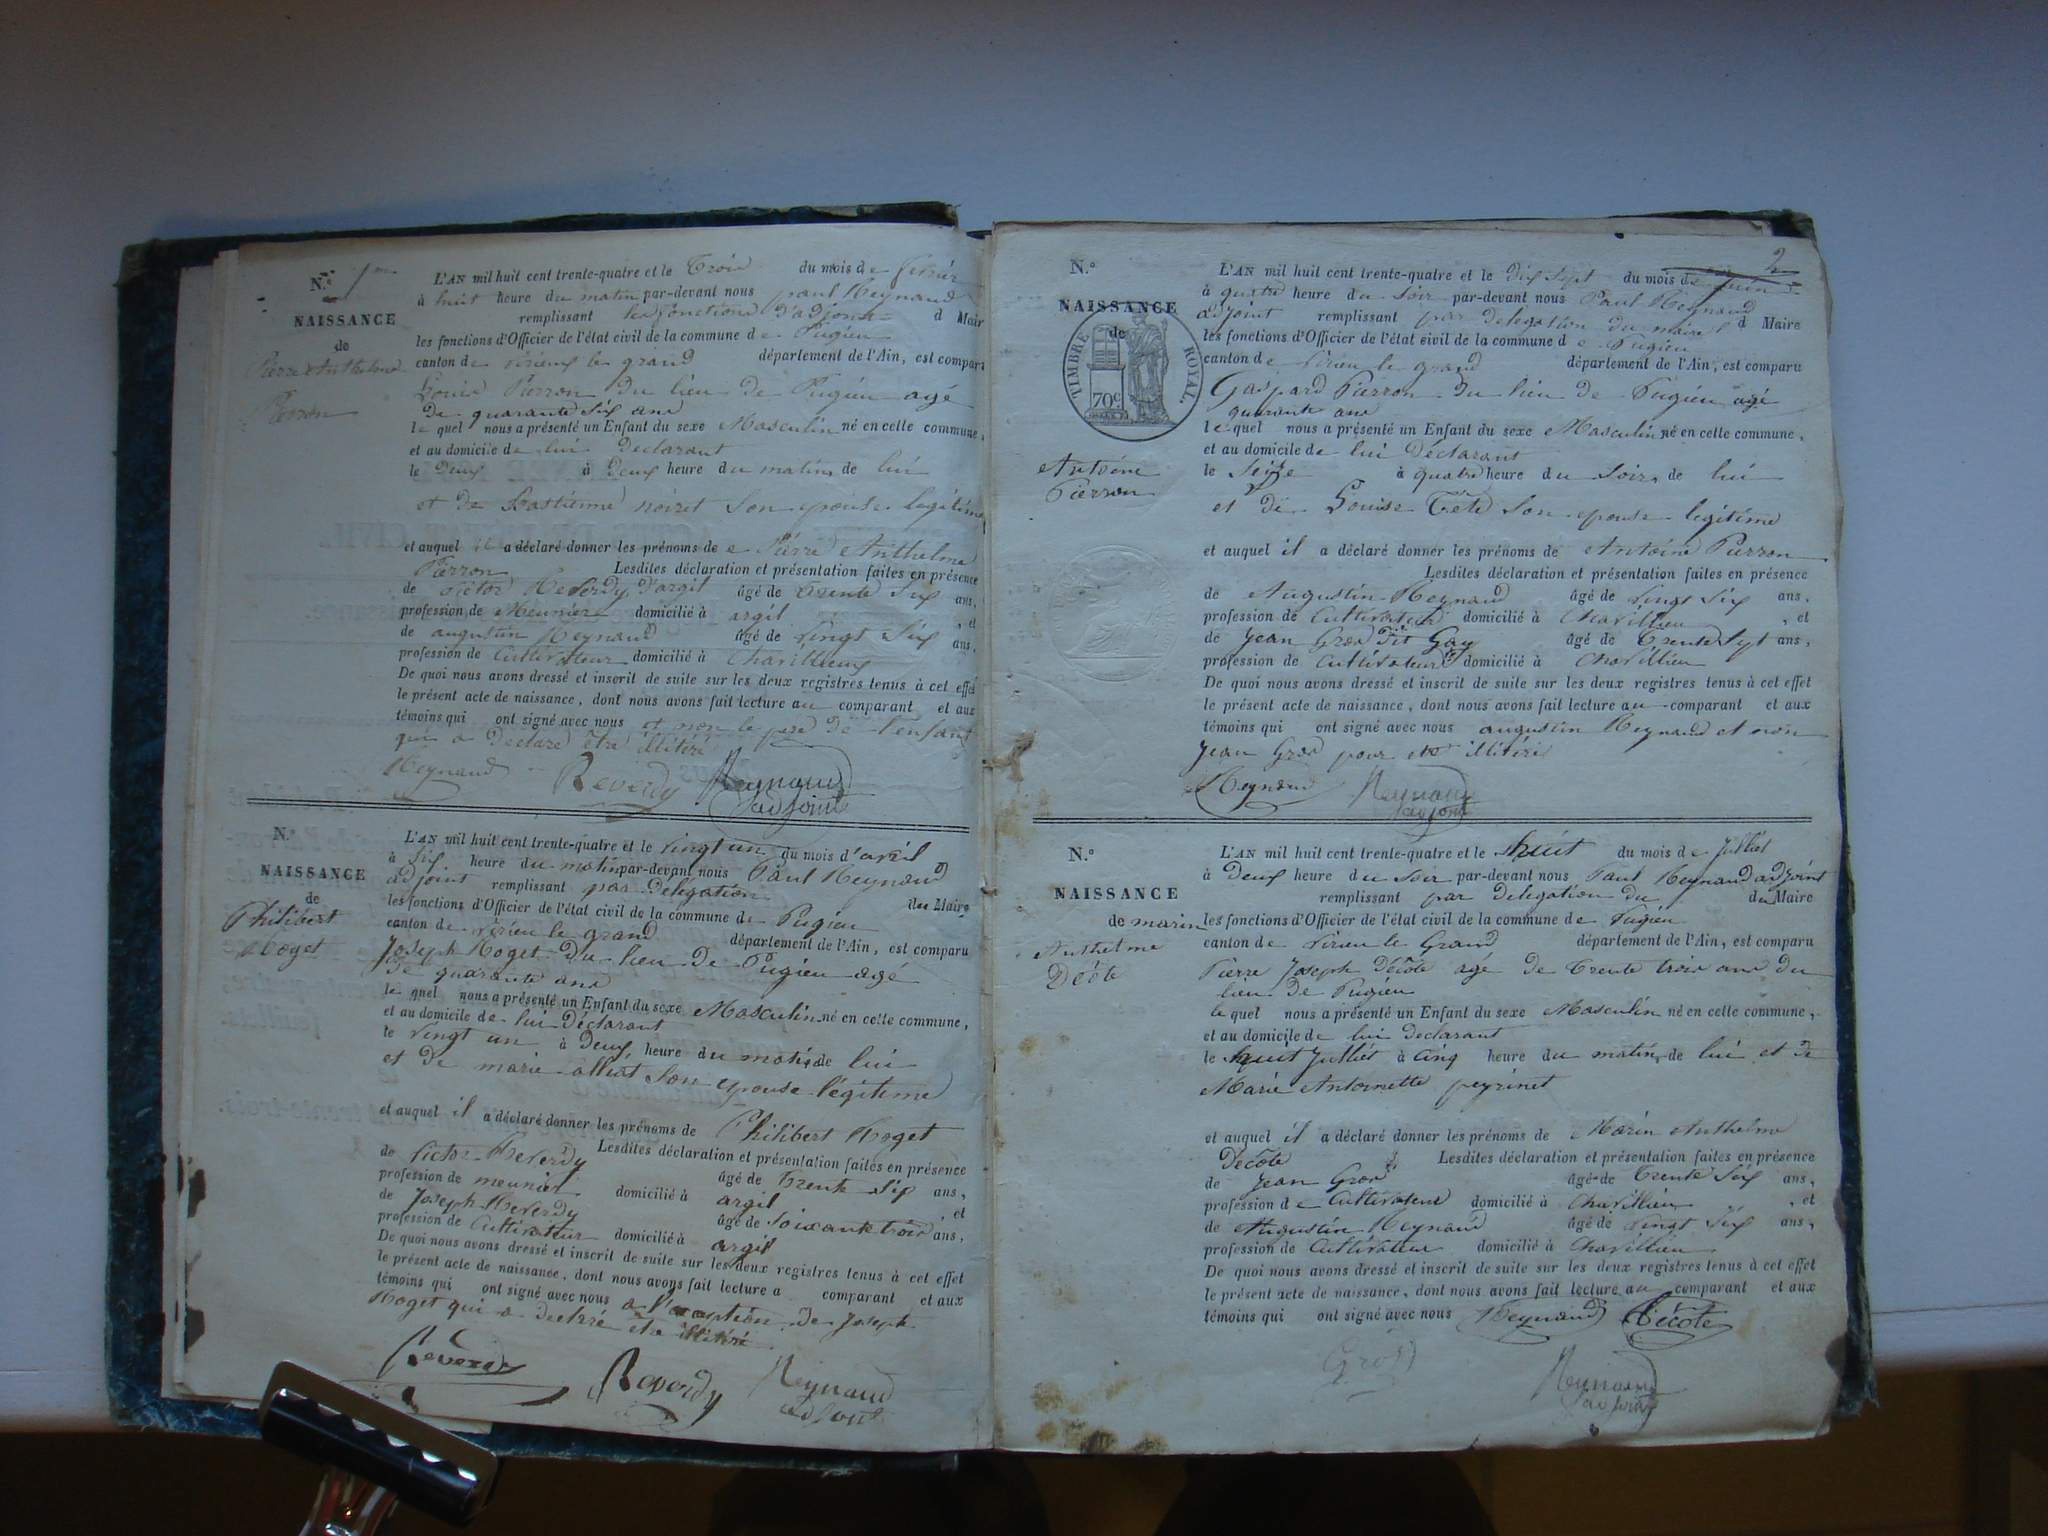 N.° 1er
NAISSANCE
de
Pierre Anthelme
Pierron
L'AN mil huit cent trente-quatre et le Trois du mois de
à huit heure du matin par-devant nous paul Reynaud
remplissant les fonctions d'adjoint d Maire
les fonctions d'Officier de l'état civil de la commune de Pugieu
canton de virieux le grand département de l'Ain, est comparu
Louis Pierron du lieu de Pugieu agé
de quarante six ans
le quel nous a présenté un Enfant du sexe Masculin né en cette commune,
et au domicile de lui Declarant
le Deux à Deux heure du matin, de lui
et de Bastienne son epouse legitime
et auquel il a déclaré donner les prénoms de Pierre Anthelme
Pierron Lesdites déclaration et présentation faites en présence
de victor Reverdy d'argil âgé de trente six ans,
profession de Meunier domicilié à argil , et
de augustin Reynaud âgé de vingt six ans,
profession de Cultivateur domicilié à Chavillieux
De quoi nous avons dressé et inscrit de suite sur les deux registres tenus à cet effet
le présent acte de naissance, dont nous avons fait lecture au comparant et aux
témoins qui ont signé avec nous et non le pere de l'enfant
qui a Declaré être illitéré
Reynaud Reverdy Reynaud
adjoint
N.°
NAISSANCE
de
Philibert
Roget
L'AN mil huit cent trente-quatre et le vingt un du mois d'avril
à six heure du matin par-devant nous Paul Reynaud
adjoint remplissant par délégation du Maire
les fonctions d'Officier de l'état civil de la commune de Pugieu
canton de virieu le grand département de l'Ain, est comparu
Joseph Roget du lieu de Pugieu agé
de quarante ans
le quel nous a présenté un Enfant du sexe Masculin né en cette commune,
et au domicile de lui Déclarant
le vingt un à Deux heure du matin de lui
et de marie son epouse légitime
et auquel il a déclaré donner les prénoms de Philibert Roget
Lesdites déclaration et présentation faites en présence
de victor Reverdy âgé de trente six ans,
profession de meunier domicilié à argil , et
de Joseph Reverdy âgé de soixante trois ans,
profession de Cultivateur domicilié à argil
De quoi nous avons dressé et inscrit de suite sur les deux registres tenus à cet effet
le présent acte de naissance, dont nous avons fait lecture a comparant et aux
témoins qui ont signé avec nous a l'exception de Joseph
Roget qui a declaré etre illitéré
Reverdy Reverdy Reynaud
adjoint
2
N.°
NAISSANCE
de
TIMBRE ROYAL.
70c
Antoine
Pierron
L'AN mil huit cent trente-quatre et le dix sept du mois de
à quatre heure du soir par-devant nous Paul Reynaud
adjoint remplissant par delegation du maire d Maire
les fonctions d'Officier de l'état civil de la commune de Pugieu
canton de virieu le grand département de l'Ain, est comparu
Gaspard Pierron du lieu de Pugieu agé
quarante ans
le quel nous a présenté un Enfant du sexe Masculin né en cette commune,
et au domicile de lui Déclarant
le Seize à quatre heure du soir, de lui
et de Louise Tete son epouse legitime
et auquel il a déclaré donner les prénoms de Antoine Pierron
Lesdites déclaration et présentation faites en présence
de Augustin Reynaud âgé de vingt six ans,
profession de Cultivateur domicilié à Chavillieu , et
de Jean Gros dit Gay âgé de trente sept ans,
profession de Cultivateur domicilié à Chavillieu
De quoi nous avons dressé et inscrit de suite sur les deux registres tenus à cet effet
le présent acte de naissance, dont nous avons fait lecture au comparant et aux
témoins qui ont signé avec nous augustin Reynaud et non
Jean Gros pour etre illitéré
Reynaud Reynaud
adjoint
N.°
NAISSANCE
de marin
Anthelme
Décote
L'AN mil huit cent trente-quatre et le huit du mois de Julliet
à Deux heure du soir par-devant nous Paul Reynaud adjoint
remplissant par delegation du du Maire
les fonctions d'Officier de l'état civil de la commune de Pugieu
canton de virieu le Grand département de l'Ain, est comparu
Pierre Joseph Décote agé de trente trois ans du
lieu de Pugieu
le quel nous a présenté un Enfant du sexe Masculin né en cette commune,
et au domicile de lui Declarant
le huit Julliet à Cinq heure du matin, de lui et de
Marie Antoinette peyrinet
et auquel il a déclaré donner les prénoms de Marin Anthelme
Décote Lesdites déclaration et présentation faites en présence
de Jean Gros âgé de Trente six ans,
profession de Cultivateur domicilié à Chavillieu , et
de Augustin Reynaud âgé de vingt six ans,
profession de Cultivateur domicilié à Chavillieu
De quoi nous avons dressé et inscrit de suite sur les deux registres tenus à cet effet
le présent acte de naissance, dont nous avons fait lecture au comparant et aux
témoins qui ont signé avec nous Reynaud Décote
Gros Reynaud
adjoint